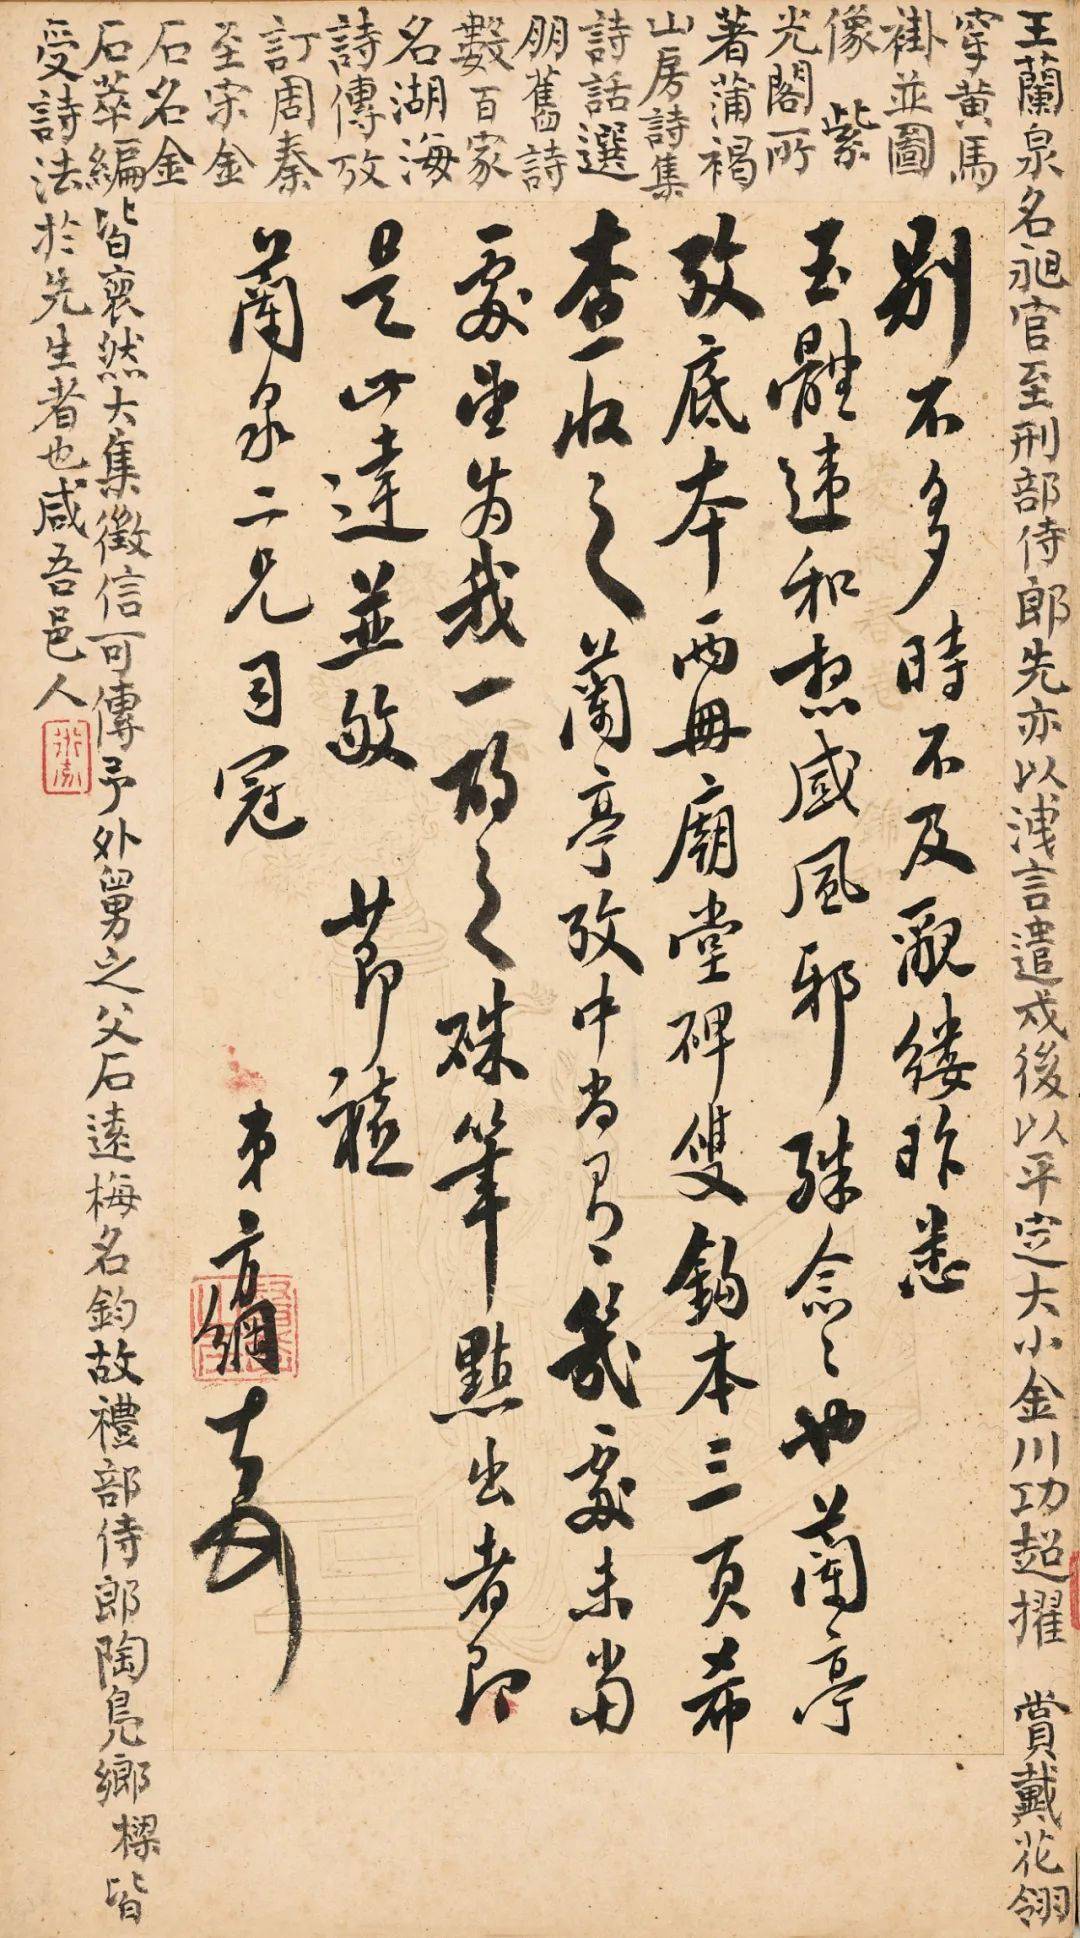 王蘭泉名昶官至刑部侍郎先亦以洩言遣戍後以平定大小金川功超擢 賞戴花翎
穿黃馬
褂並圖
像 紫
光閣所
著蒲褐
山房詩集
詩話選
朋舊詩
數百家
名湖海
詩傳攷
訂周秦
至宋金
石名金
石萃編皆裒然大集徵信可傳予外舅之父石遠梅名鈞故禮部侍郎陶鳧鄉樑皆
受詩法於先生者也咸吾邑人
別不多時不及覼縷昨悉
玉體違和想感風邪殊念〻也蘭亭
攷底本兩冊廟堂碑雙鉤本三頁希
查收之蘭亭攷中尚有幾處未當
處望为我一酌之硃筆點出者即
是也此達並敂 節禧
蘭泉二兄司冠
弟方綱